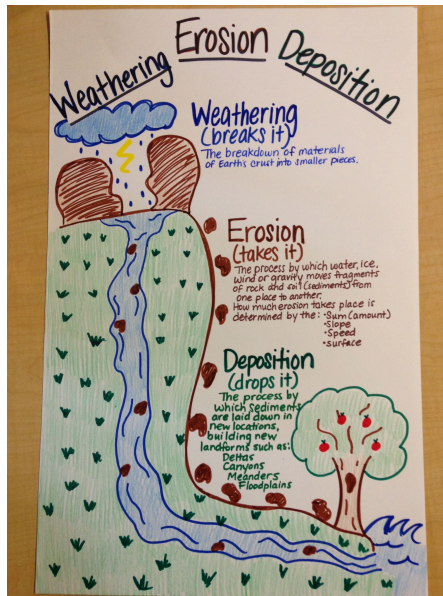 Weathering Erosion Deposition
Weathering
(breaks it)
The breakdown of materials
of Earth's crust into smaller pieces.
Erosion
(takes it)
The process by which water, ice,
wind or gravity moves fragments
of rock and soil (sediments) from
one place to another.
How much erosion takes place is
determined by the: •Sum (amount)
•Slope
•Speed
•surface
Deposition
(drops it)
The process by
which sediments
are laid down in
new locations,
building new
landforms such as:
Deltas
Canyons
Meanders
Floodplains